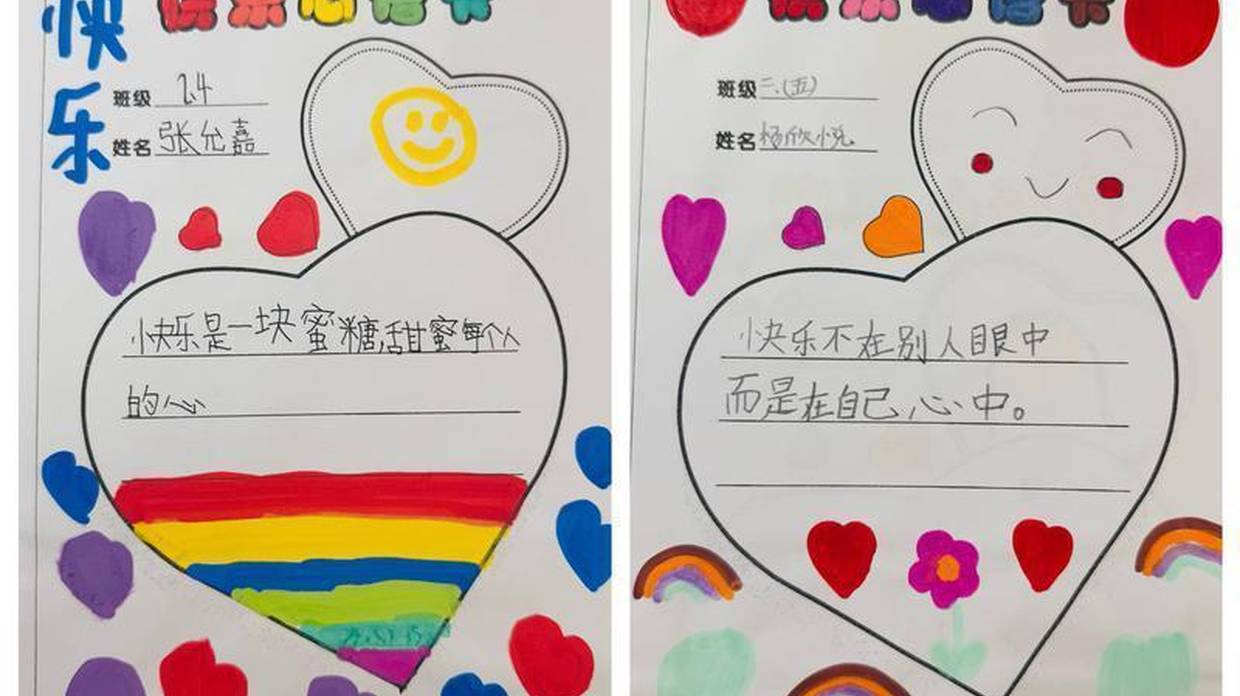 快乐
快乐心语卡
班级 2.4
姓名 张允嘉
快乐是一块蜜糖,甜蜜每个人
的心
快乐心语卡
班级 二.(五)
姓名 杨欣悦
快乐不在别人眼中
而是在自己心中。